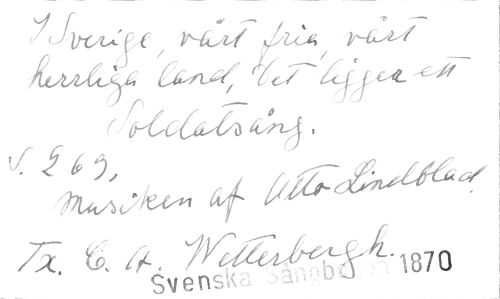 I Sverige, vårt fria, vårt
herrliga land, det ligger ett
Soldatsång.
S. 269,
Musiken af Otto Lindblad.
Tx. C. A. Wetterbergh.
Svenska Sångboken 1870